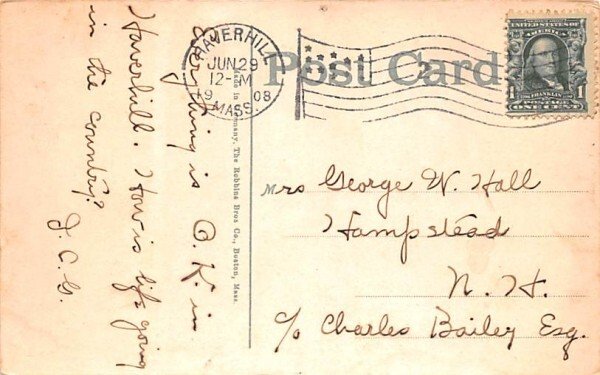 Post Card
HAVERHILL
JUN 29
12-M
19 08
MASS.
UNITED STATES OF AMERICA
1 FRANKLIN 1
POSTAGE
ONE CENT
Everything is O.K. in
Haverhill. How is life going
in the country?
J. C. G.
Made in Germany. The Robbins Bros Co., Boston, Mass.
Mrs George W. Hall
Hampstead
N. H.
c/o Charles Bailey Esq.